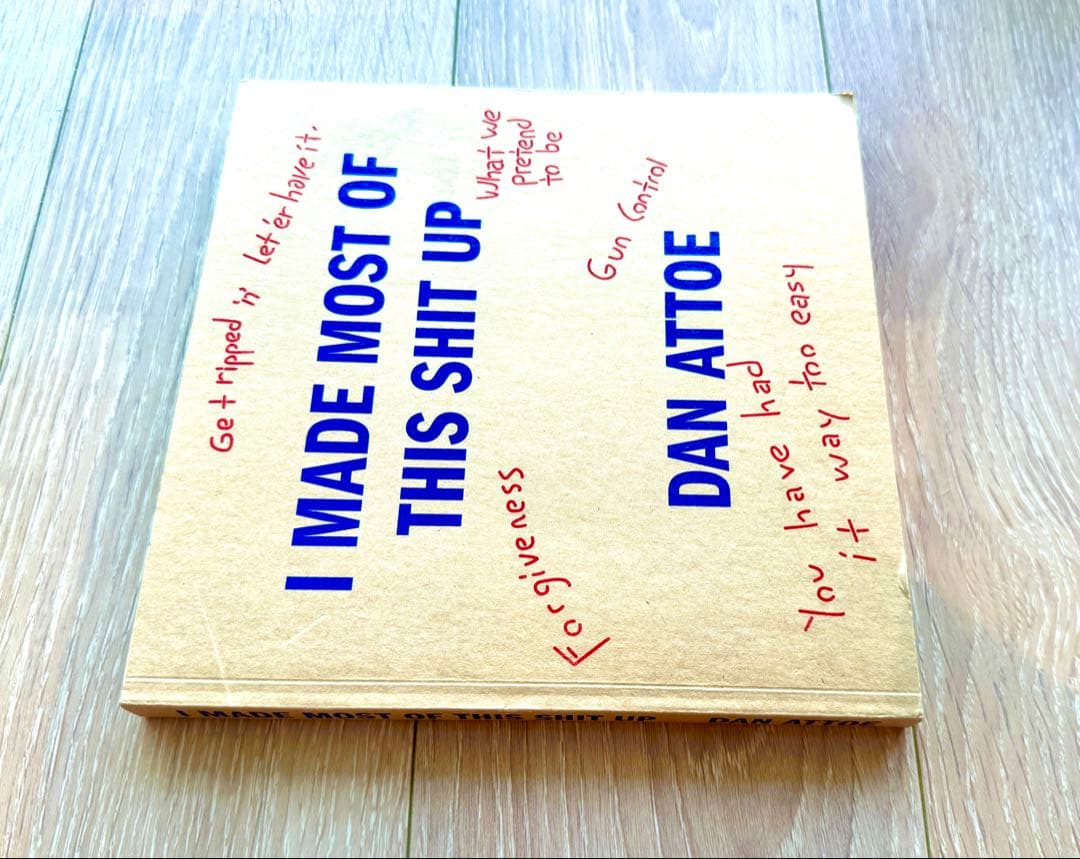 Get ripped 'n' let'er have it.
I MADE MOST OF
THIS SHIT UP
What we
pretend
to be
Forgiveness
Gun Control
DAN ATTOE
You have had
it way too easy
I MADE MOST OF THIS SHIT UP DAN ATTOE